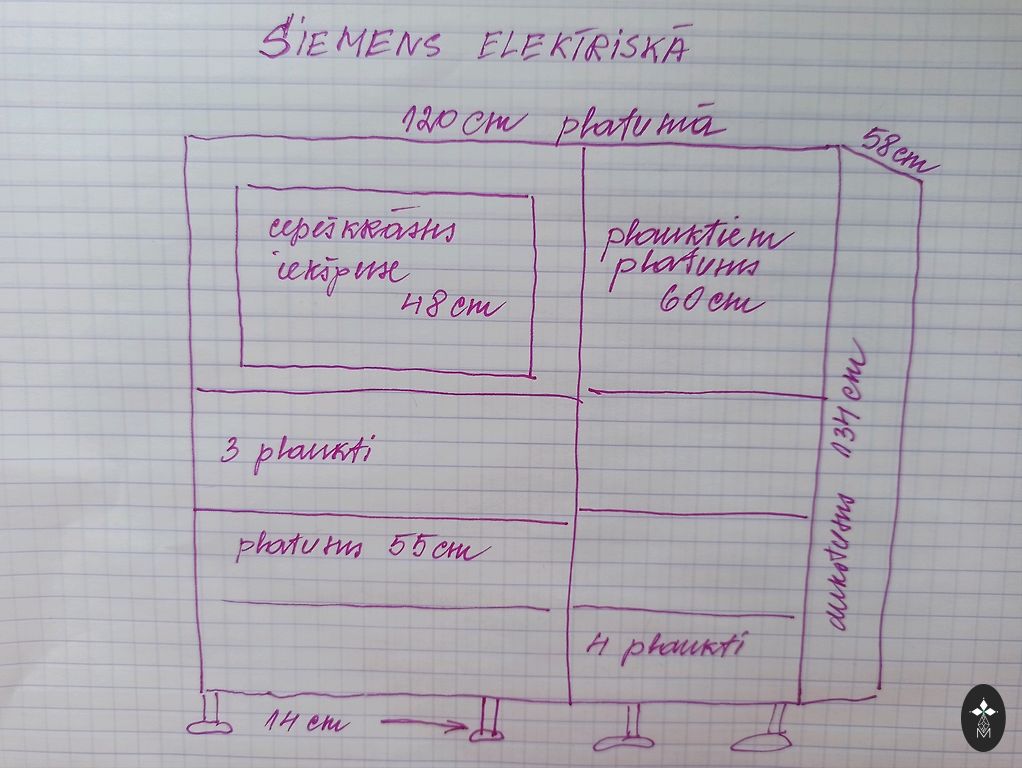 SIEMENS ELEKTRISKĀ
120 cm platumā
58cm
cepeškrāsns
iekšpuse
48cm
plauktiem
platums
60cm
3 plaukti
platums 55cm
augstums 134cm
4 plaukti
14 cm
M